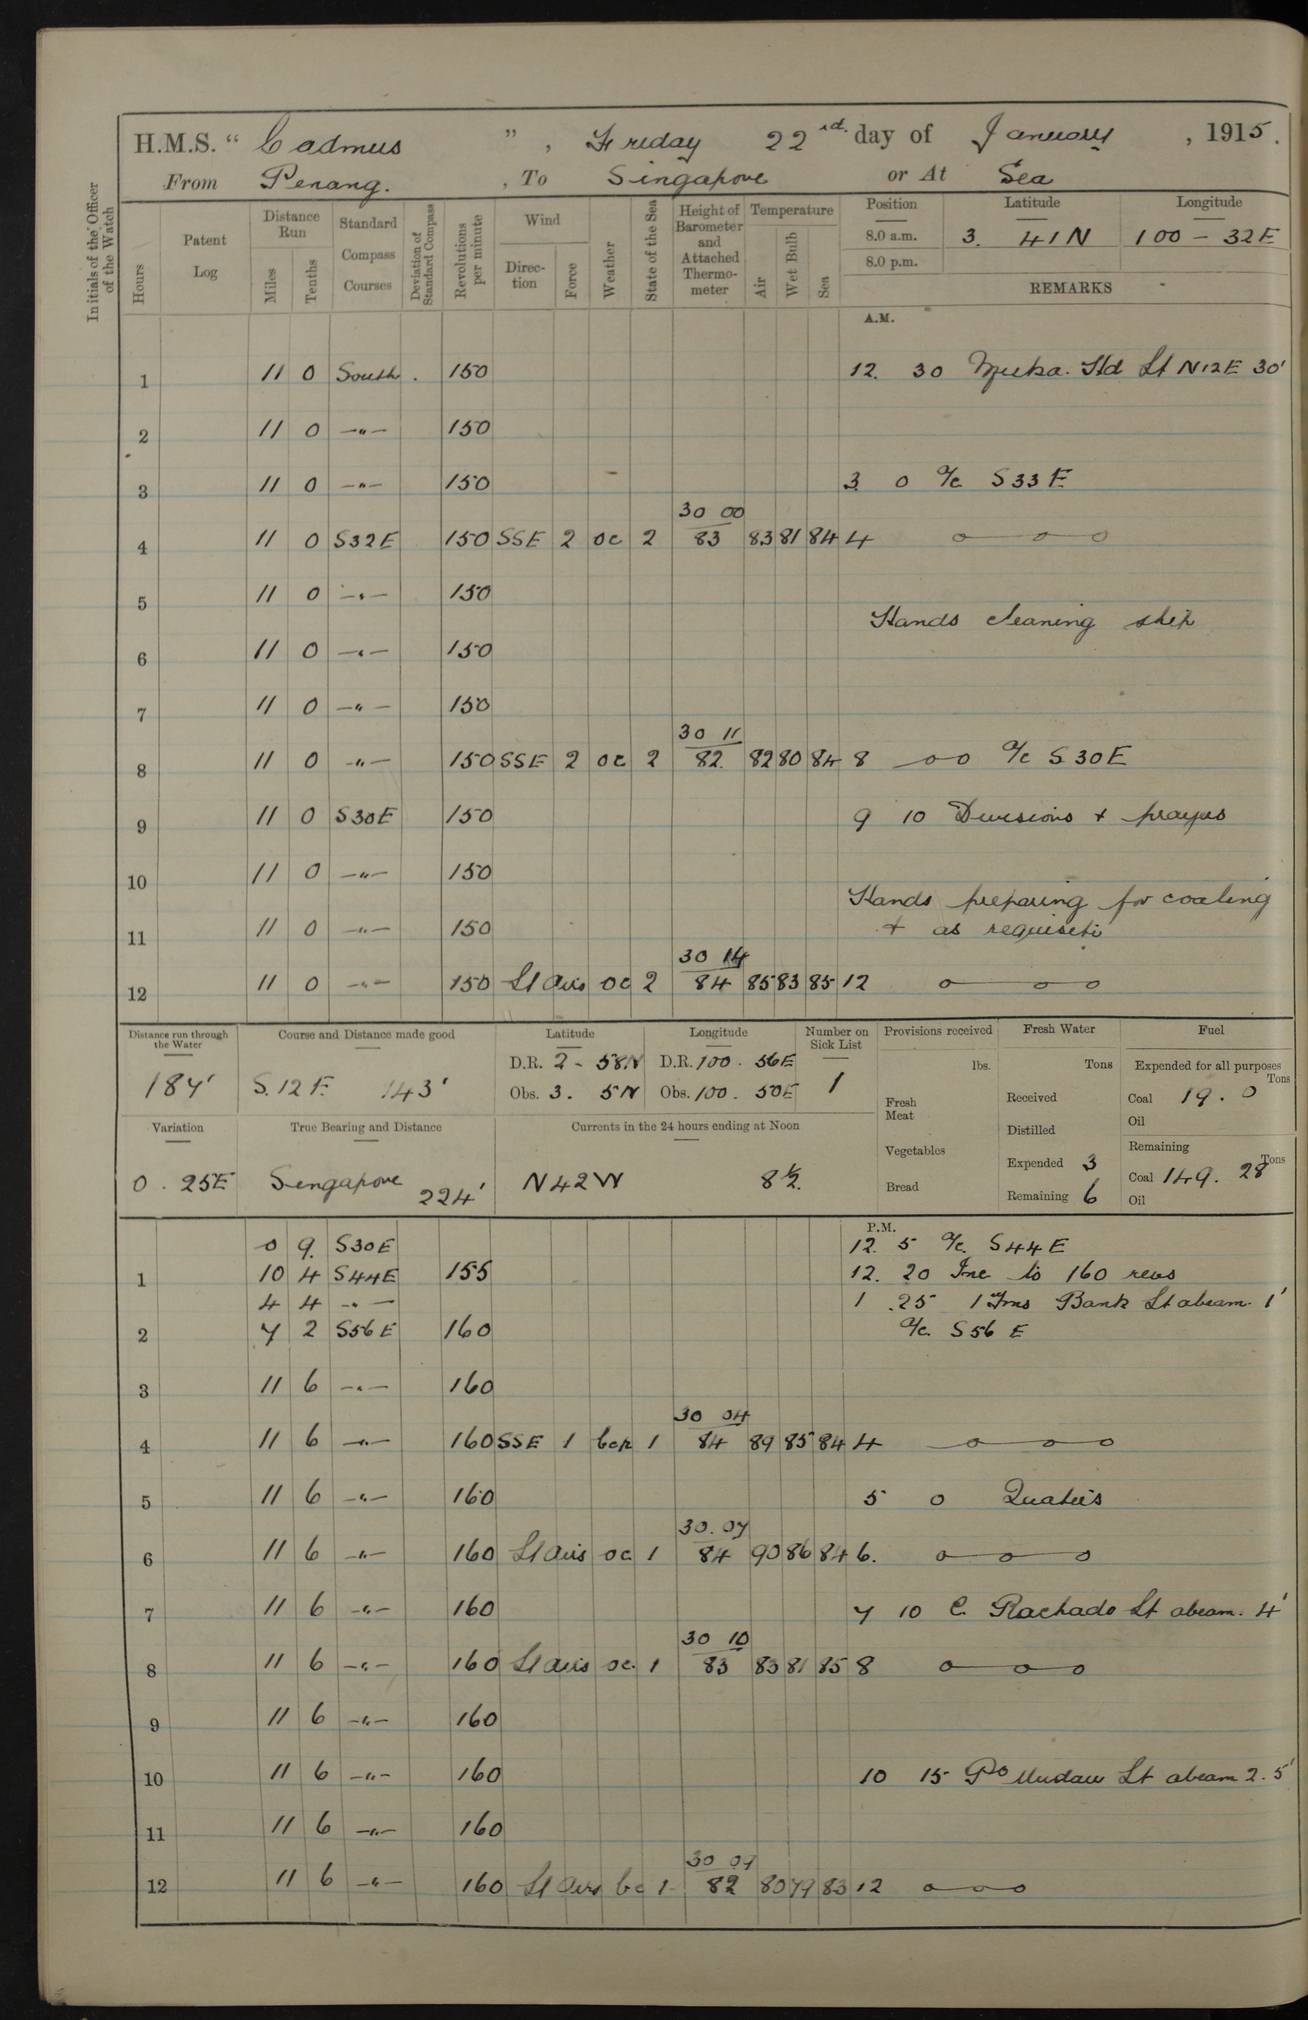 H.M.S. " Cadmus ", Friday 22nd. day of January, 1915.
From Penang. , To Singapore or At Sea
Initials of the Officer of the Watch
Hours Patent Log Distance Run Miles Tenths Standard Compass Courses Deviation of Standard Compass Revolutions per minute Wind Direction Force Weather State of the Sea Height of Barometer and Attached Thermometer Temperature Air Wet Bulb Sea
Position Latitude Longitude
8.0 a.m. 3. 41N 100 - 32E
8.0 p.m.
REMARKS
A.M.
1 11 0 South. 150 12. 30 Muka Hd Lt N12E 30'
2 11 0 —"— 150
3 11 0 —"— 150 3 0 a/c S33E
30 00
4 11 0 S32E 150 SSE 2 oc 2 83 83 81 84 4 o—o—o
5 11 0 —"— 150
Hands cleaning ship
6 11 0 —"— 150
7 11 0 —"— 150
30 11
8 11 0 —"— 150 SSE 2 oc 2 82 82 80 84 8 —oo a/c S30E
9 11 0 S30E 150 9 10 Divisions + prayers
10 11 0 —"— 150
Hands preparing for coaling
11 11 0 —"— 150 + as requisite
30 14
12 11 0 —"— 150 Lt airs oc 2 84 85 83 85 12 o—o—o
Distance run through the Water Course and Distance made good Latitude Longitude Number on Sick List Provisions received Fresh Water Fuel
D.R. 2 - 58N D.R. 100. 56E lbs. Tons Expended for all purposes Tons
184' S.12E. 143' Obs. 3. 5N Obs. 100. 50E 1 Fresh Meat Received Coal 19. 0
Distilled Oil
Variation True Bearing and Distance Currents in the 24 hours ending at Noon Vegetables Remaining Tons
0. 25E Singapore 224' N42W 8½. Expended 3 Coal 149. 28
Bread Remaining 6 Oil
P.M.
0 9. S30E 12. 5 a/c. S44E
1 10 4 S44E 155 12. 20 Inc to 160 revs
4 4 —"— 1 .25 1 Fms Bank Lt abeam. 1'
2 7 2 S56E 160 a/c. S56 E
3 11 6 —"— 160
30 04
4 11 6 —"— 160 SSE 1 bcp 1 84 89 85 84 4 o—o—o
5 11 6 —"— 160 5 0 Quarters
30. 07
6 11 6 —"— 160 Lt airs oc 1 84 90 86 84 6. o—o—o
7 11 6 —"— 160 7 10 C. Rachado Lt abeam. 4'
30 10
8 11 6 —"— 160 Lt airs oc. 1 83 83 81 85 8 o—o—o
9 11 6 —"— 160
10 11 6 —"— 160 10 15 Po Undan Lt abeam 2. 5'
11 11 6 —"— 160
30 09
12 11 6 —"— 160 Lt airs bc 1 82 80 79 83 12 o—o—o